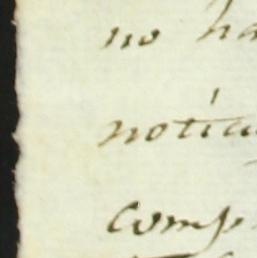 no ha
notici
comp